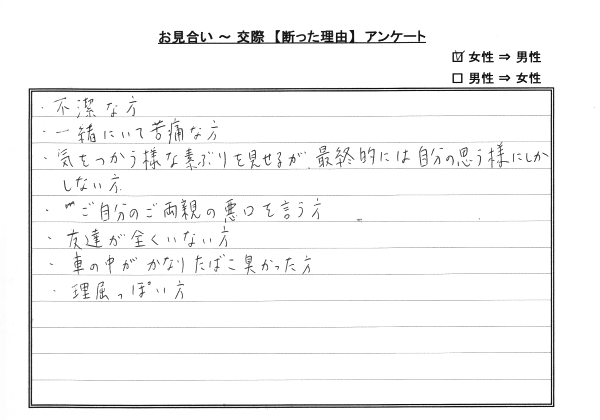 お見合い ～ 交際 【断った理由】 アンケート
☑ 女性 ⇒ 男性
□ 男性 ⇒ 女性
・不潔な方
・一緒にいて苦痛な方
・気をつかう様な素ぶりを見せるが、最終的には自分の思う様にしか
しない方
・ご自分のご両親の悪口を言う方
・友達が全くいない方
・車の中がかなりたばこ臭かった方
・理屈っぽい方